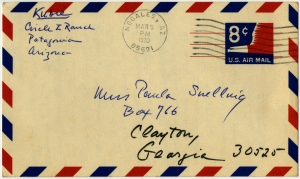 Circle Z Ranch
Patagonia
Arizona
NOGALES, AZ
MAR
PM
85621
8¢
U.S. AIR MAIL
Miss Paula Snelling
Box 766
Clayton,
Georgia 30525